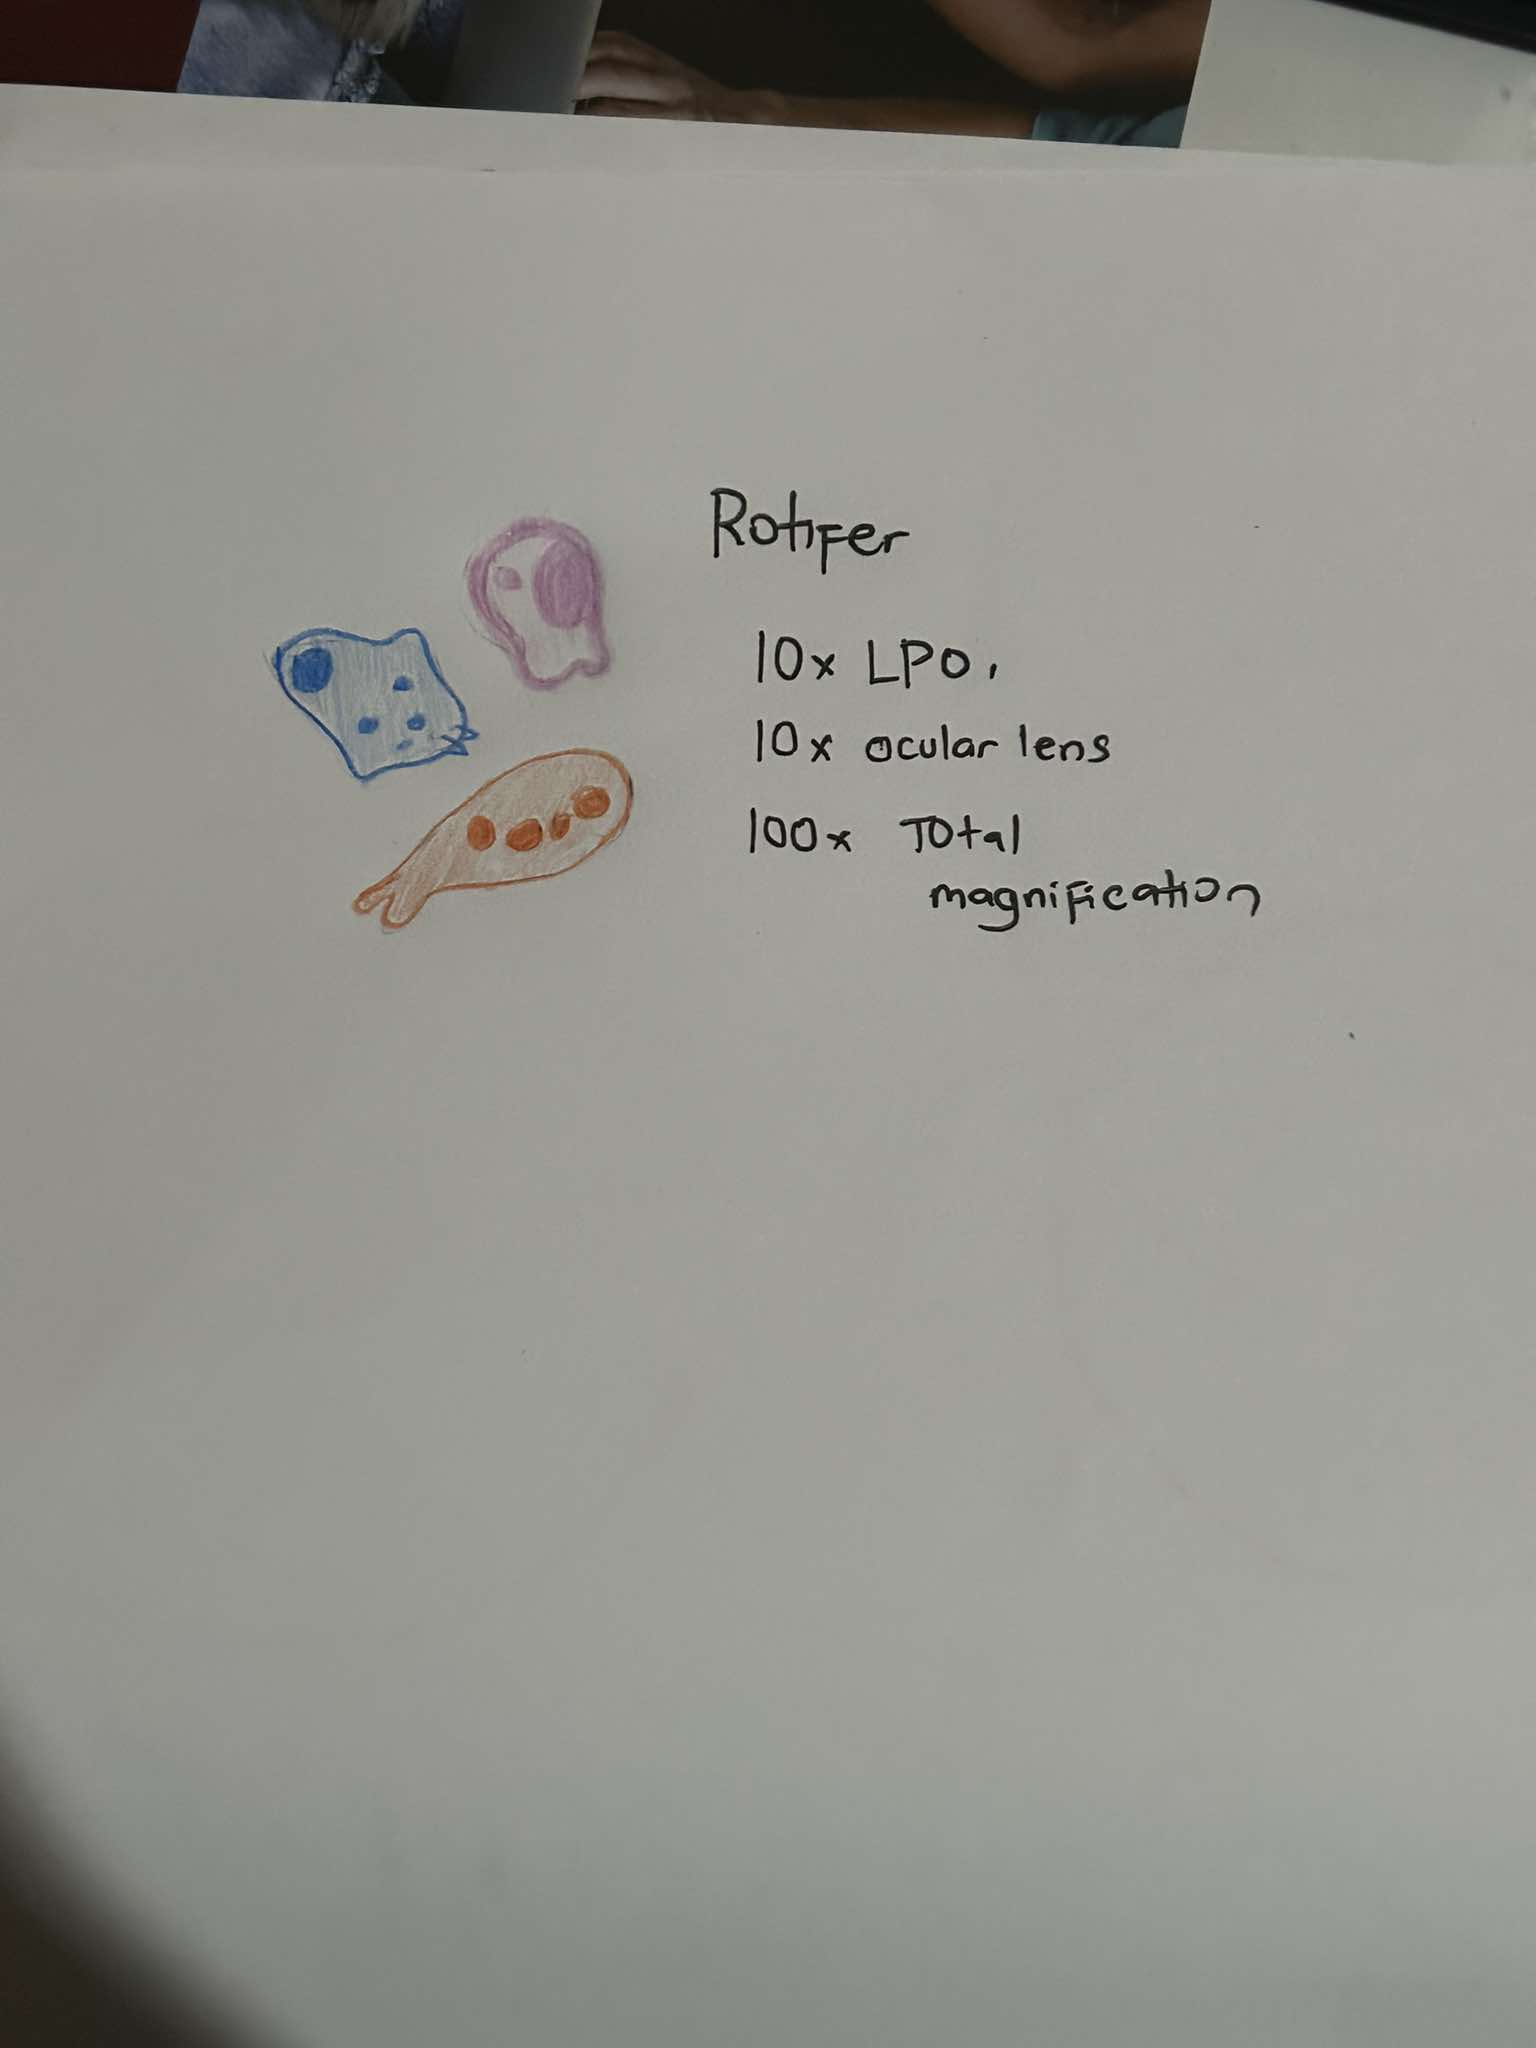 Rotifer
10x LPO,
10x ocular lens
100x Total
magnification